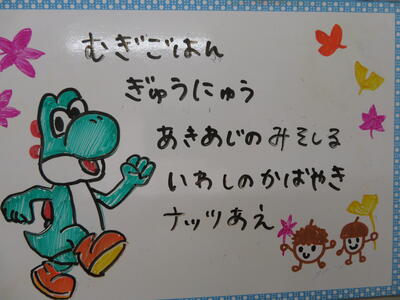 むぎごはん
ぎゅうにゅう
あきあじのみそしる
いわしのかばやき
ナッツあえ